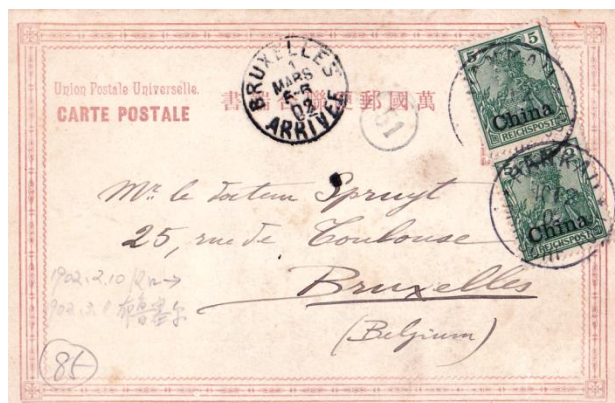 Union Postale Universelle.
CARTE POSTALE
萬國郵聯
書
BRUXELLES
1
MARS
02
ARRIVEE
51
5
China
REICHSPOST
China
REICHSPOST
Mr. le docteur Spruyt
25, rue de Toulouse
Bruxelles
(Belgium)
1902.2.10
1902.3.1 布鲁塞尔
85